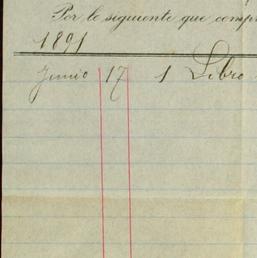 Por lo siguiente que comp
1891
Junio 17 1 Libro